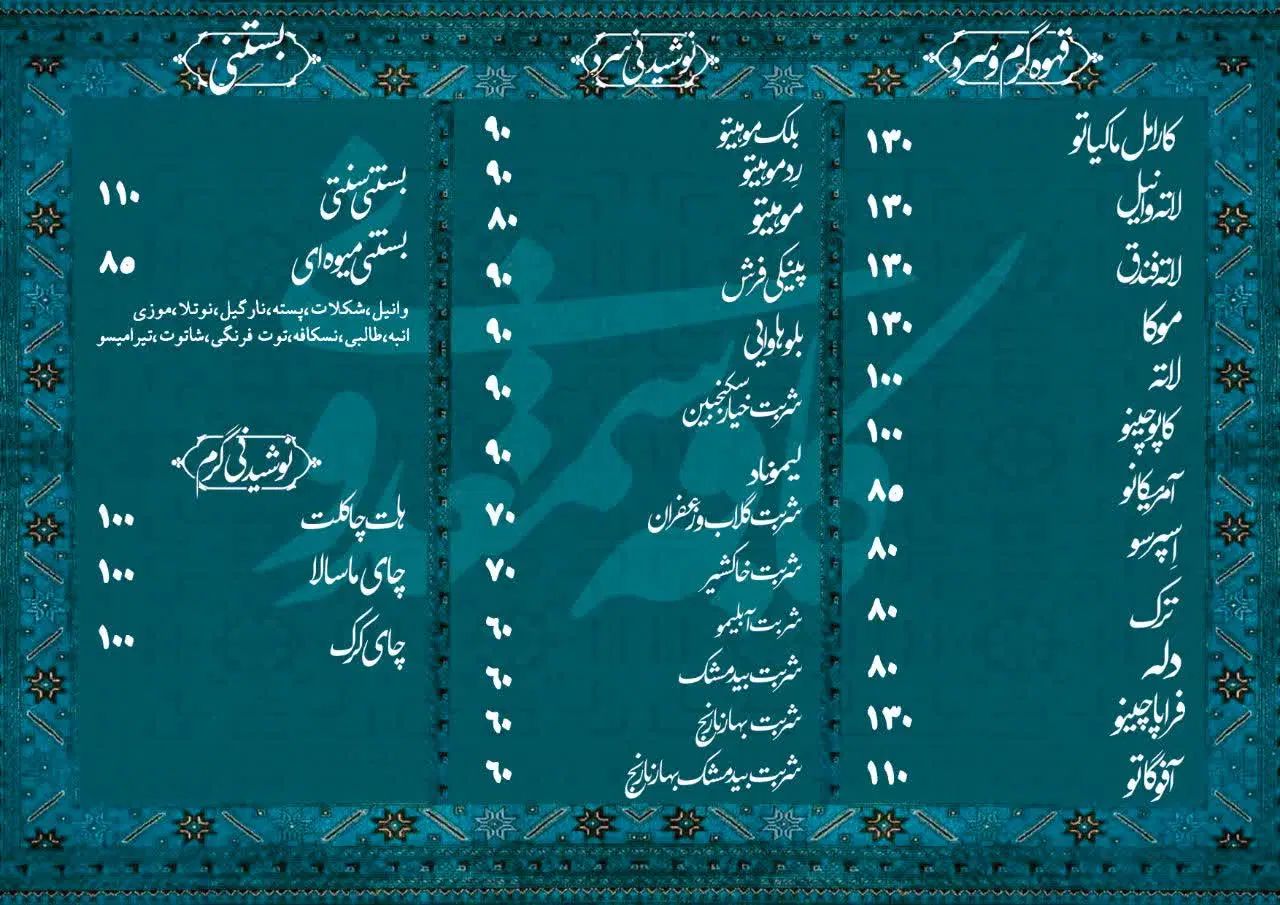 قهوه گرم و سرد
کارامل ماکیاتو ۱۳۰
لاته وانیل ۱۳۰
لاته فندق ۱۳۰
موکا ۱۳۰
لاته ۱۰۰
کاپوچینو ۱۰۰
آمریکانو ۸۵
اِسپرسو ۸۰
ترک ۸۰
دله ۸۰
فراپاچینو ۱۳۰
آفوگاتو ۱۱۰
نوشیدنی سرد
بلک موهیتو ۹۰
رِد موهیتو ۹۰
موهیتو ۸۰
پینکی فرش ۹۰
بلو هاوایی ۹۰
شربت خیار سکنجبین ۹۰
لیموناد ۹۰
شربت گلاب و زعفران ۷۰
شربت خاکشیر ۷۰
شربت آبلیمو ۶۰
شربت بیدمشک ۶۰
شربت بهارنارنج ۶۰
شربت بیدمشک بهارنارنج ۶۰
بستنی
بستنی سنتی ۱۱۰
بستنی میوه ای ۸۵
وانیل،شکلات،پسته،نارگیل،نوتلا،موزی
انبه،طالبی،نسکافه،توت فرنگی،شاتوت،تیرامیسو
نوشیدنی گرم
هات چاکلت ۱۰۰
چای ماسالا ۱۰۰
چای کرک ۱۰۰